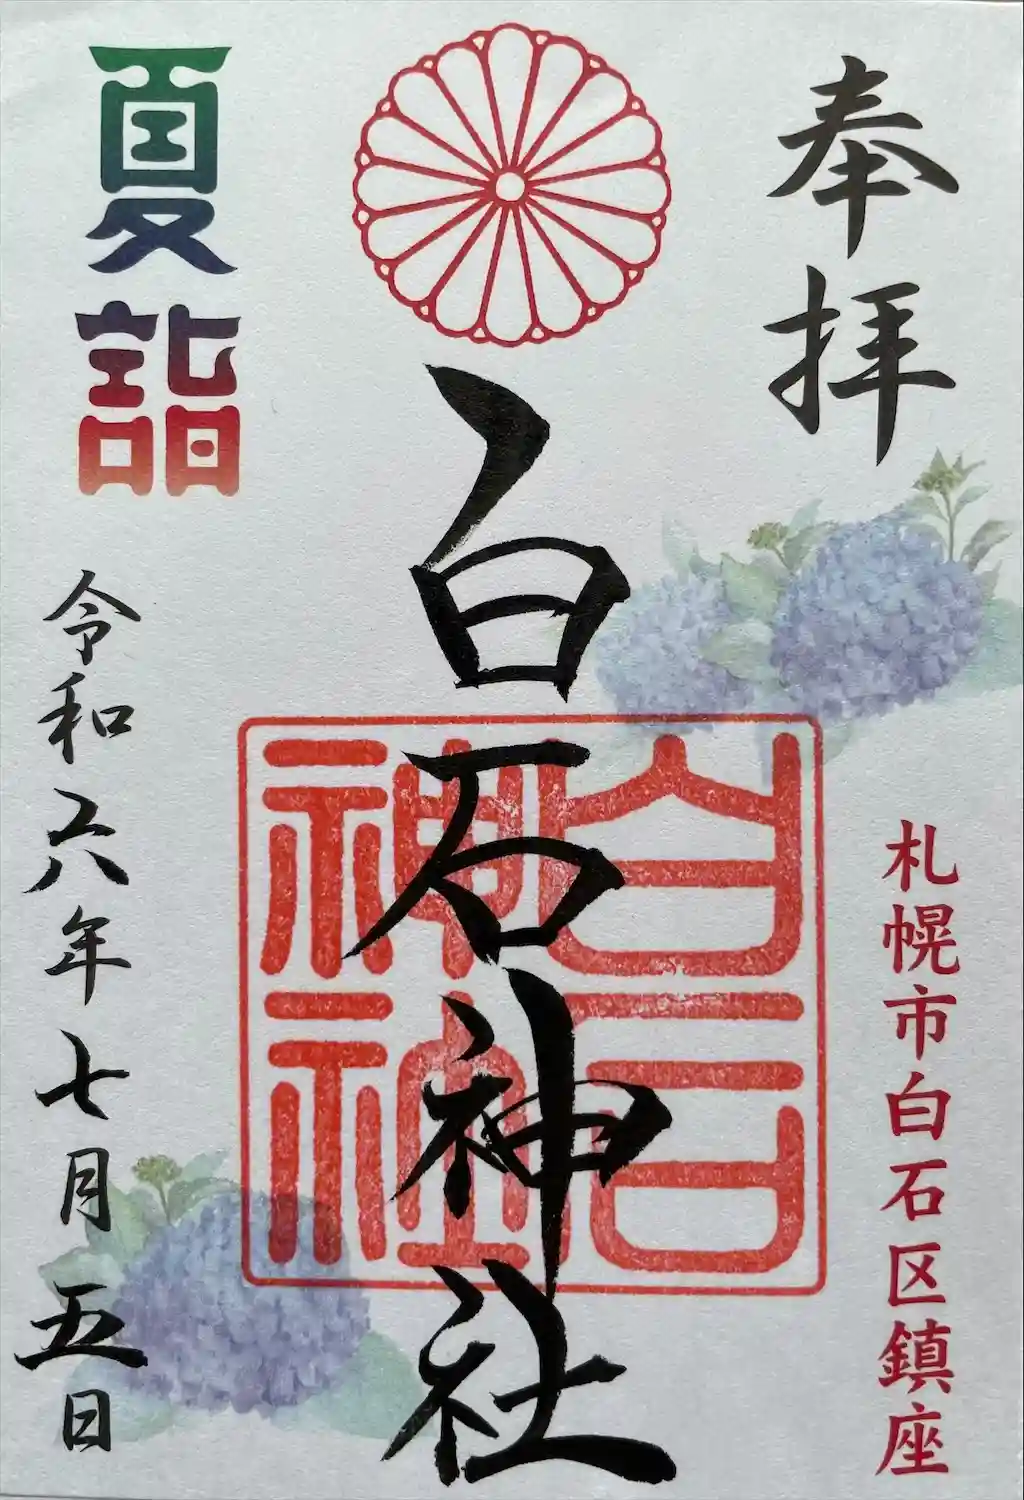 奉拝
札幌市白石区鎮座
白石神社
白石神社
夏詣
令和六年七月五日